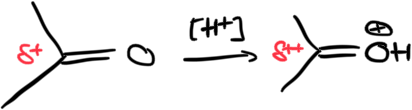 δ+ O [H+] δ++ ⊕ OH